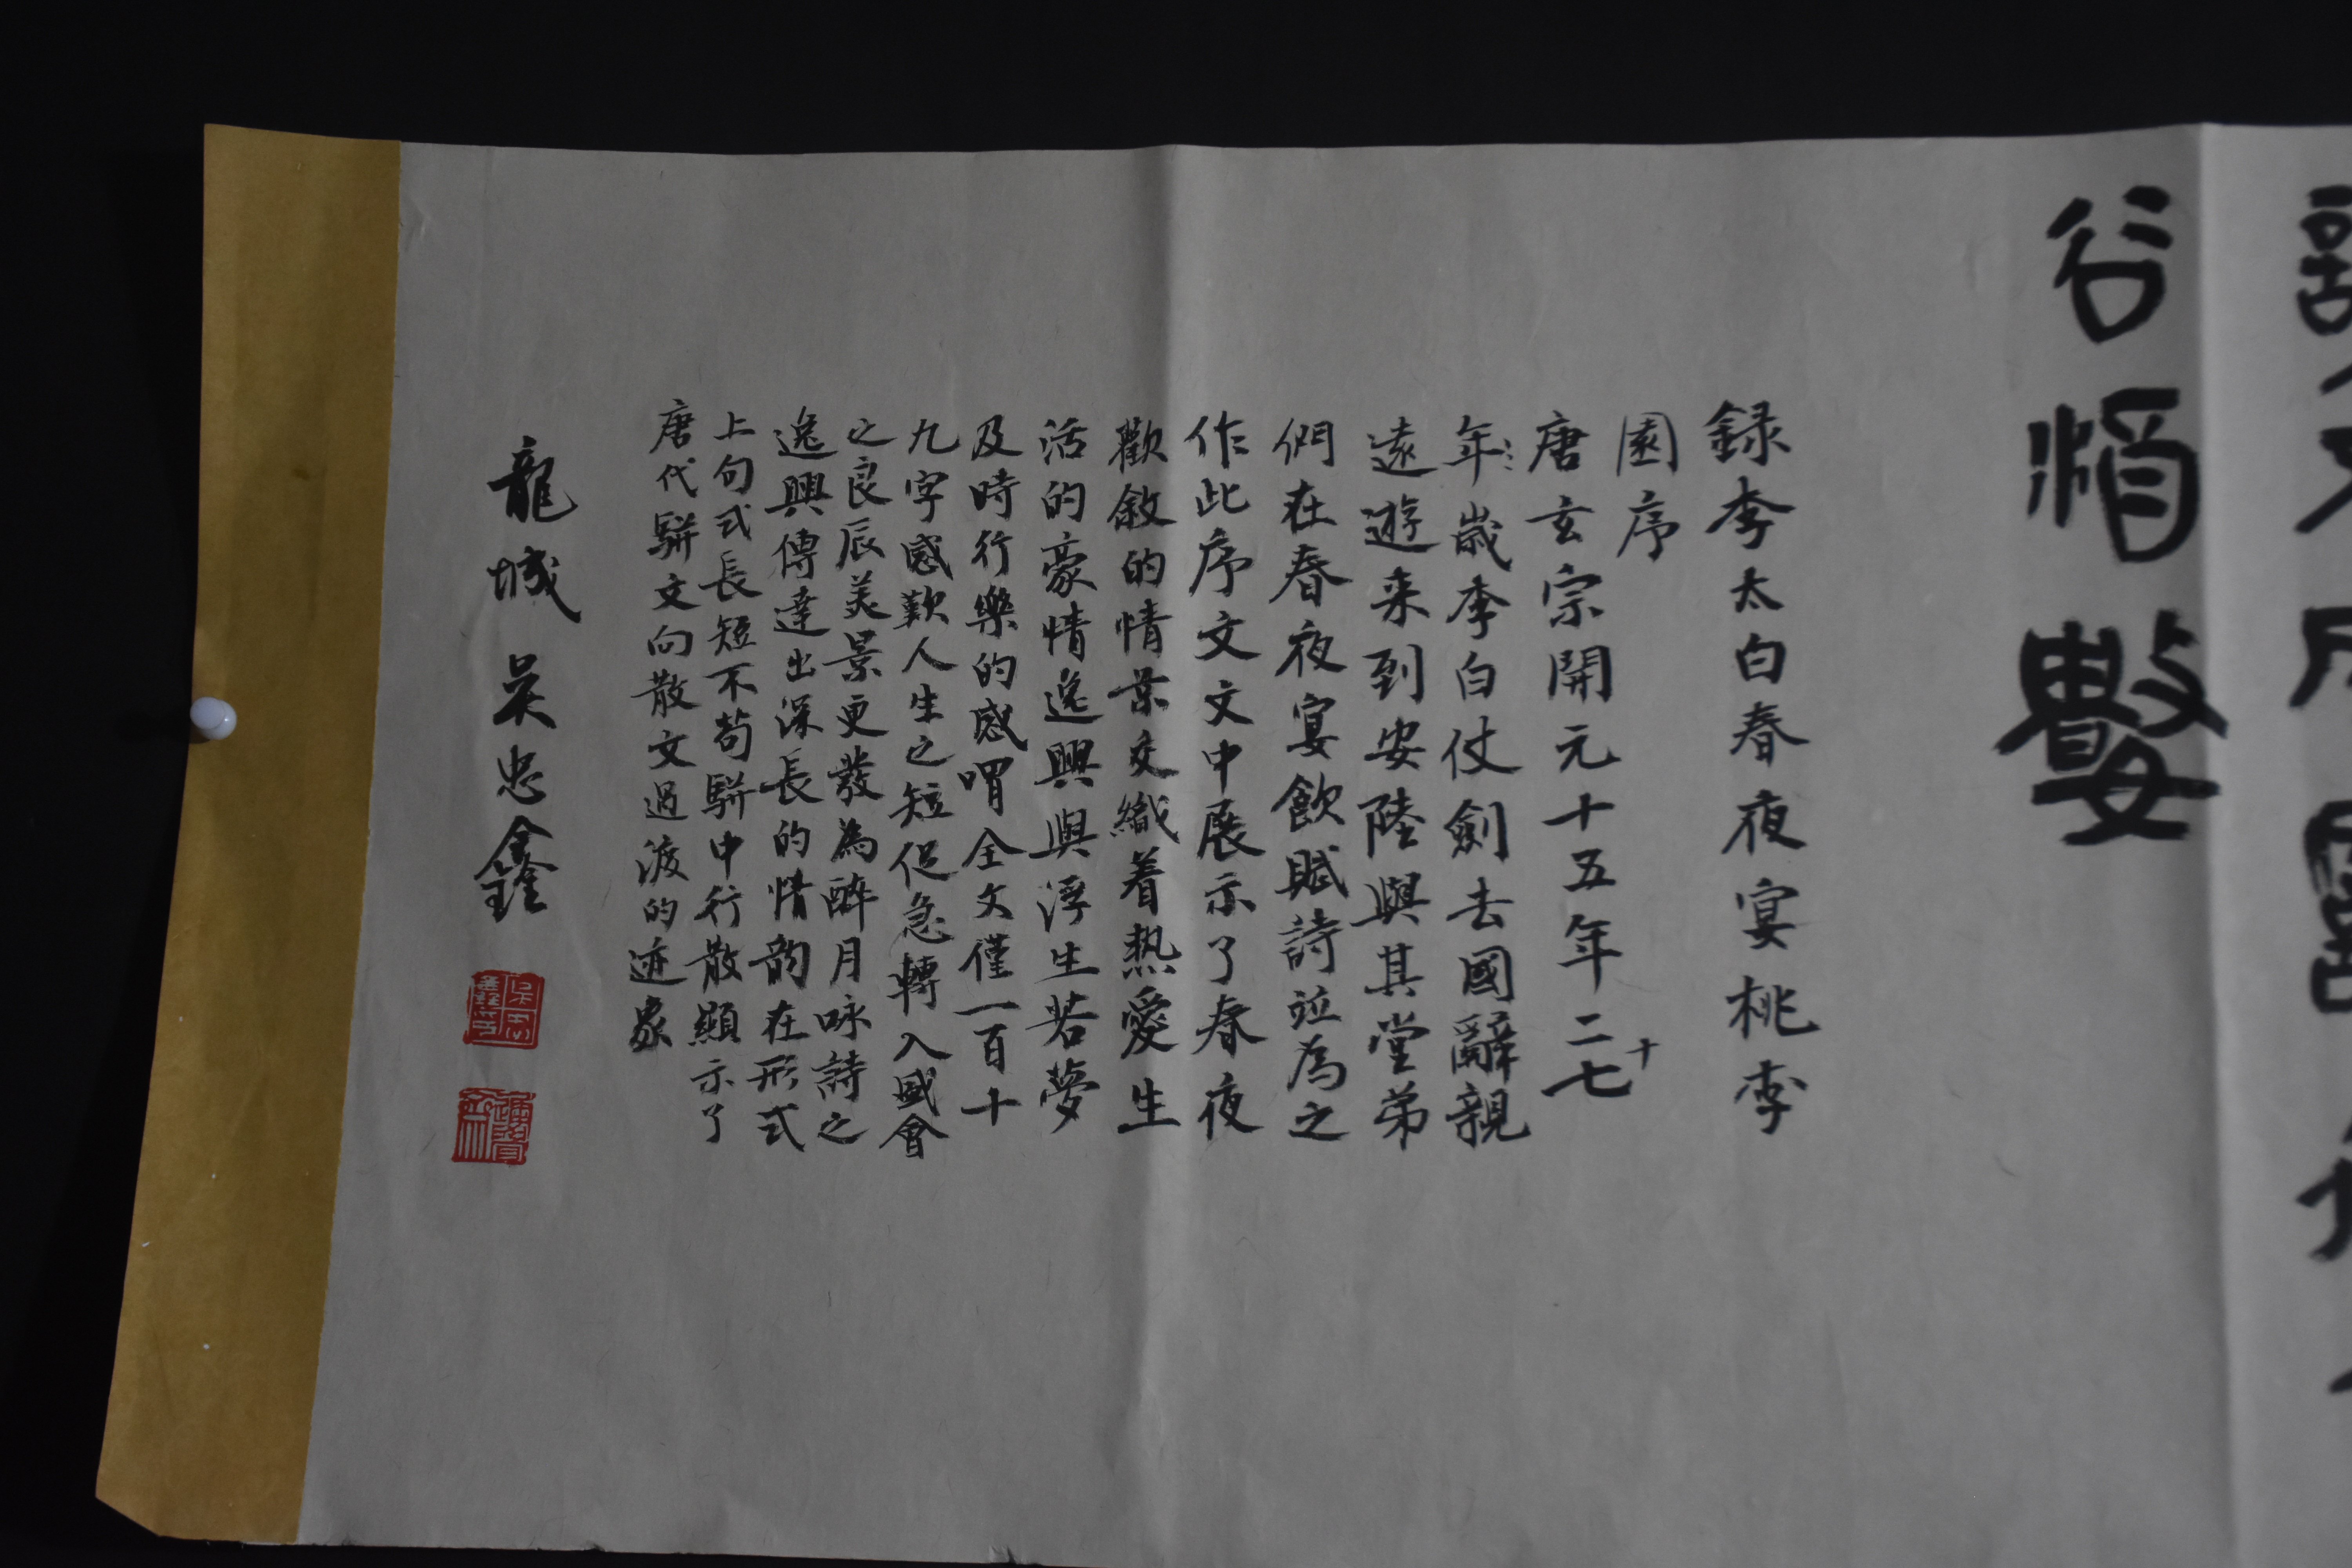 谷酒數
録李太白春夜宴桃李
園序
唐玄宗開元十五年二十七
年歲李白仗劍去國辭親
遠遊来到安陸與其堂弟
們在春夜宴飲賦詩並為之
作此序文文中展示了春夜
歡敘的情景交織着热愛生
活的豪情逸興與浮生若夢
及時行樂的感喟全文僅一百十
九字感歎人生之短促急轉入盛會
之良辰美景更發為醉月咏詩之
逸興傳達出深長的情韵在形式
上句式長短不苟駢中行散顯示了
唐代駢文向散文過渡的迹象
龍城吴忠鑫